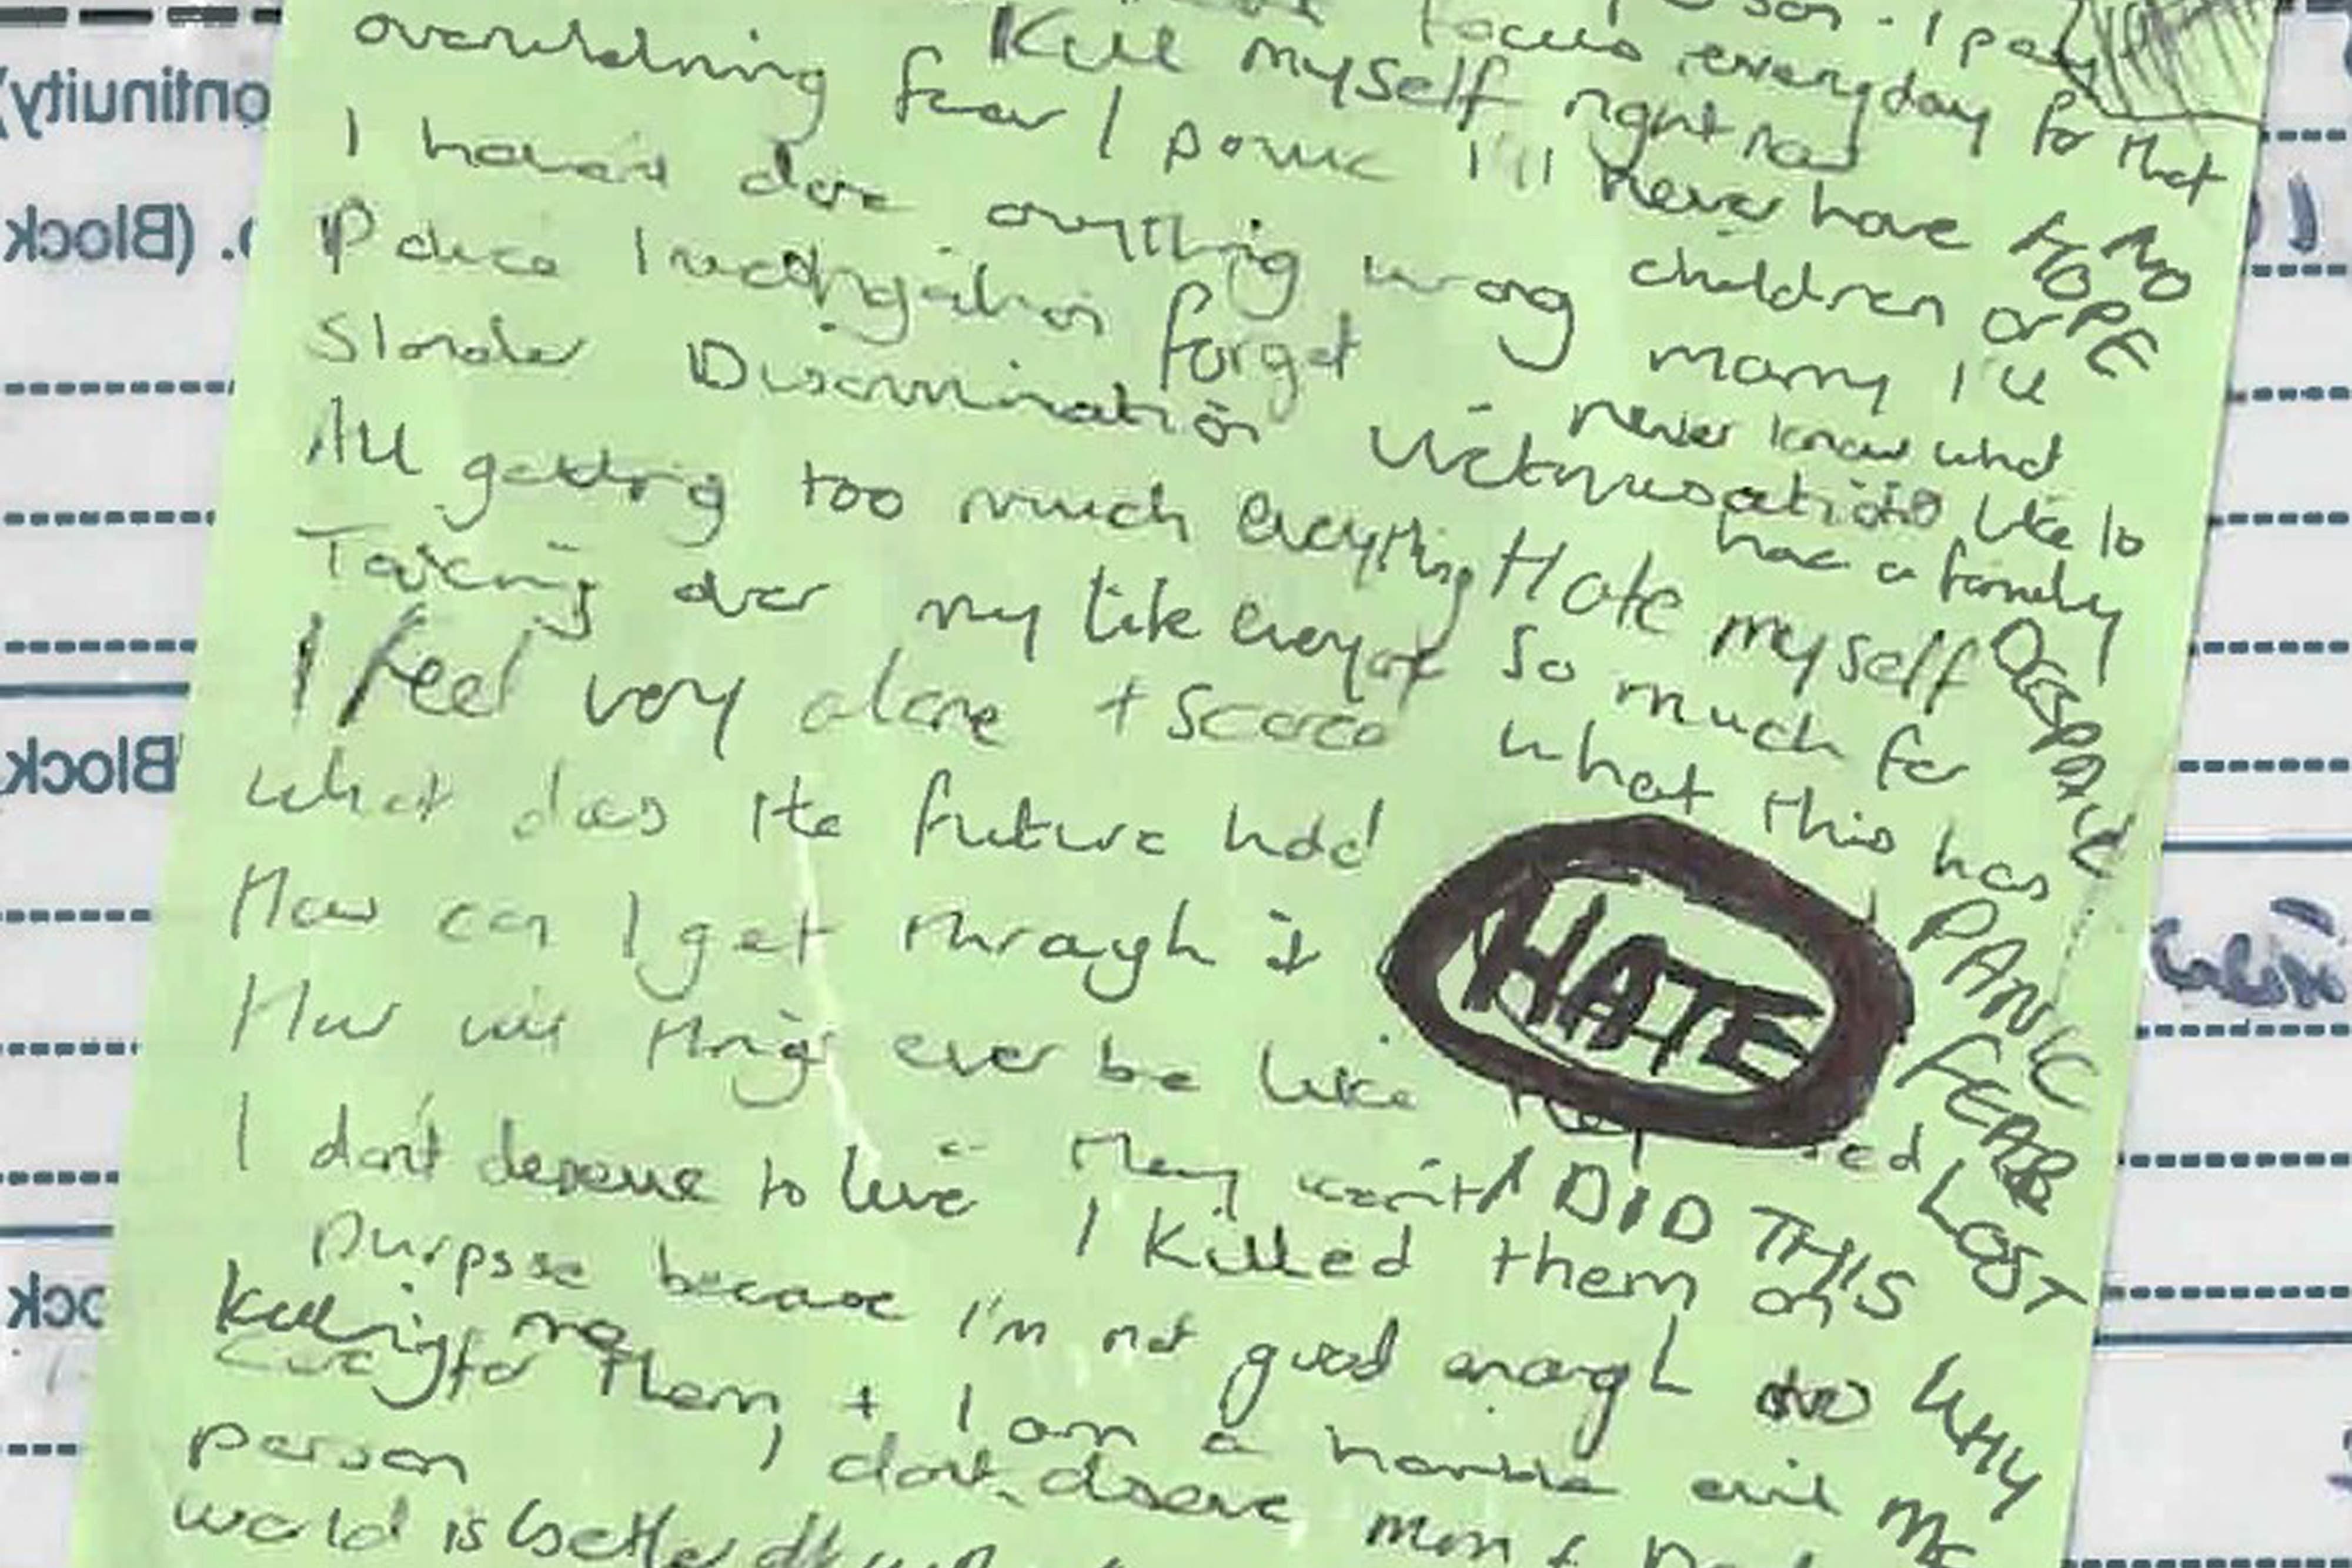 overwhelming fear I panic I'll never have
Kill myself right now
focus everyday for that
I pay
children or
marry I'll
never know what
like to
have a family
NO
HOPE
I haven't done anything wrong
Police Investigation forget
Slander Discrimination Victimisation
All getting too much everything
Taking over my life everyone
Hate myself
so much for
what this has
I feel very alone + scared
What does the future hold
How can I get through it
How will things ever be like
HATE
DESPAIR
PANIC
FEAR
LOST
I don't deserve to live They went I DID THIS
I killed them on
purpose because I'm not good enough to
care for them + I am a horrible evil
killing me
person I don't deserve Mum + Dad
world is better off
WHY
ME
ontinuity)
(Block
Block